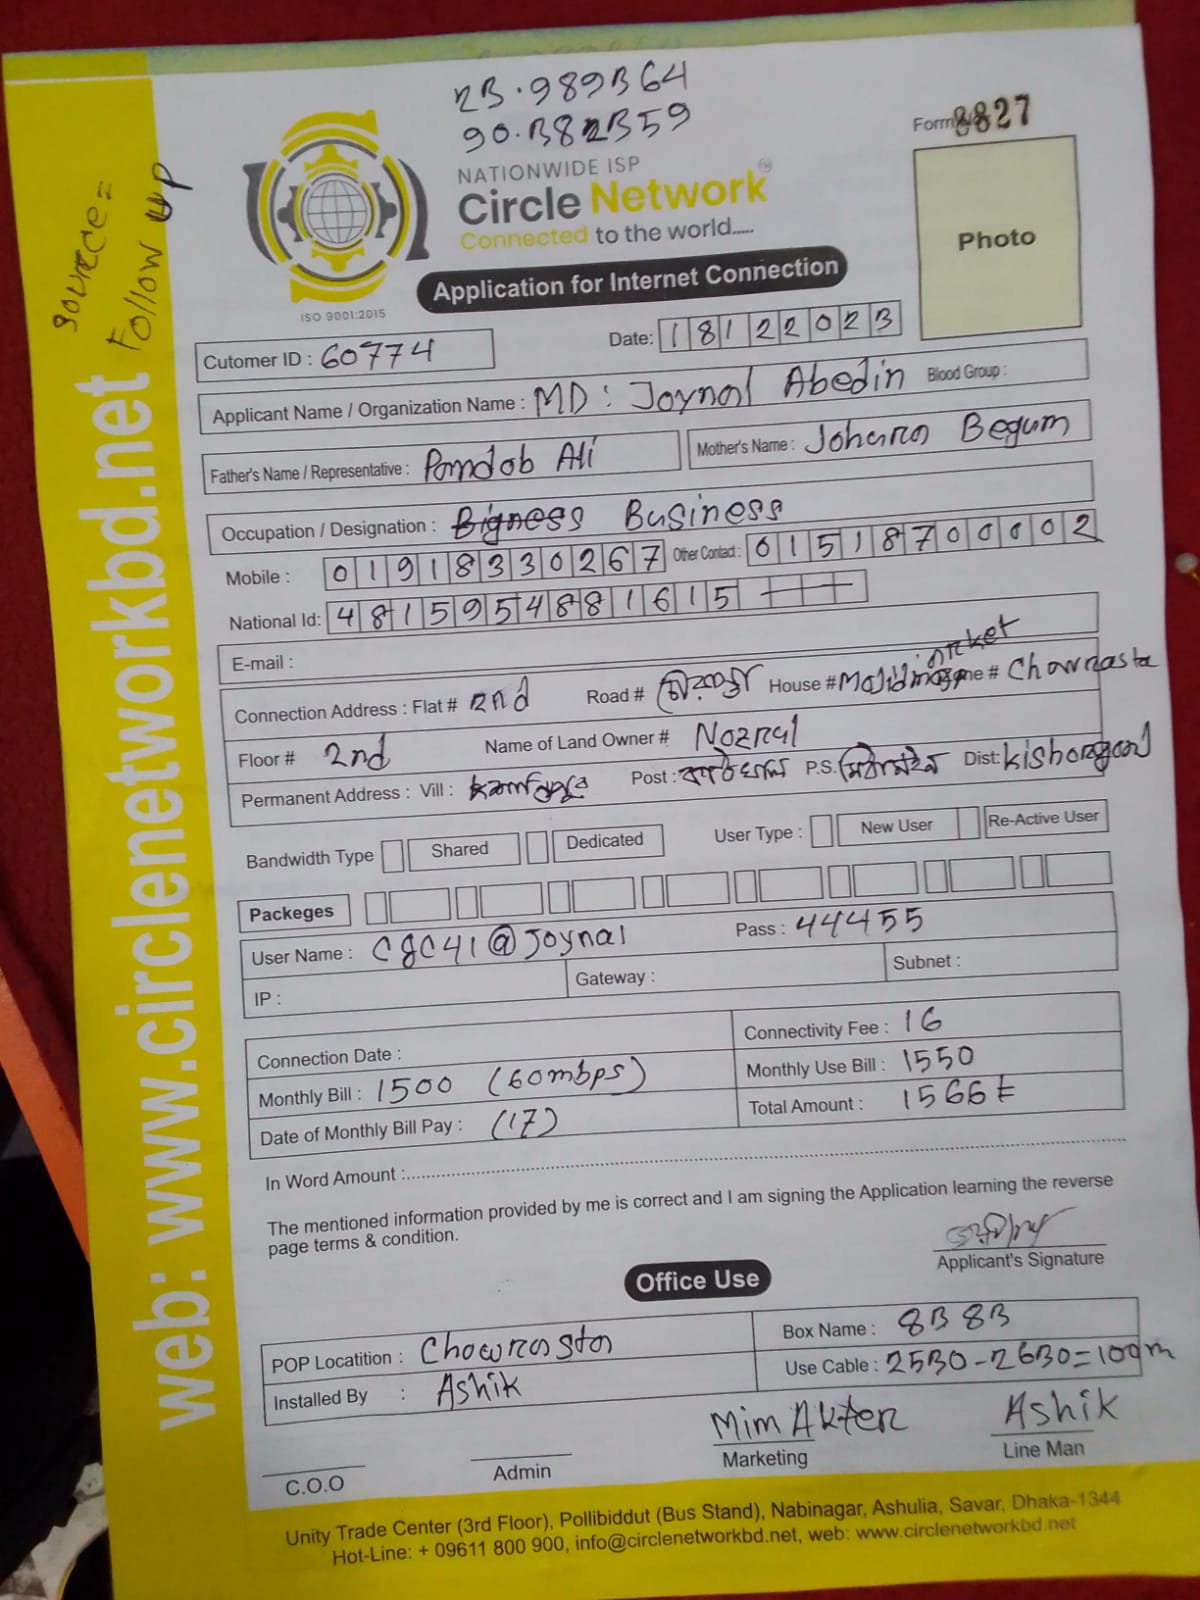 23.989364
90.382359
Form 8827
NATIONWIDE ISP
Circle Network
TM
Connected to the world.....
Photo
ISO 9001:2015
Application for Internet Connection
source=
Follow up
Cutomer ID : 60774
Date: 18122023
Applicant Name / Organization Name : MD: Joynal Abedin Blood Group :
Father's Name / Representative : Pandob Ali Mother's Name : Johura Begum
Occupation / Designation : Business
Mobile : 01918330267 Other Contact : 01518700002
National Id: 4815954881615
E-mail :
Connection Address : Flat # 2nd Road # House # Masjid market # Chowrasta
Floor # 2nd Name of Land Owner # Nozrul
Permanent Address : Vill : Post : P.S. Dist: Kishoregonj
Bandwidth Type Shared Dedicated User Type : New User Re-Active User
Packeges
User Name : CGC41@Joynal Pass : 44455
IP : Gateway : Subnet :
Connection Date : Connectivity Fee : 16
Monthly Bill : 1500 (60mbps) Monthly Use Bill : 1550
Date of Monthly Bill Pay : (17) Total Amount : 1566
In Word Amount :
The mentioned information provided by me is correct and I am signing the Application learning the reverse
page terms & condition.
Applicant's Signature
Office Use
POP Locatition : Chowrasta Box Name : 8B 8B
Installed By : Ashik Use Cable : 2530-2630=100m
Mim Akter Ashik
C.O.O Admin Marketing Line Man
Unity Trade Center (3rd Floor), Pollibiddut (Bus Stand), Nabinagar, Ashulia, Savar, Dhaka-1344
Hot-Line: + 09611 800 900, info@circlenetworkbd.net, web: www.circlenetworkbd.net
web: www.circlenetworkbd.net